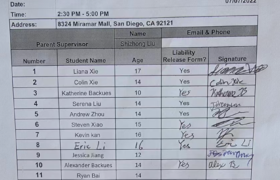 Date: 07/07/2022
Time: 2:30 PM - 5:00 PM
Address: 8324 Miramar Mall, San Diego, CA 92121
Name Email & Phone
Parent Supervisor Shizheng Liu
Number Student Name Age Liability Release Form? Signature
1 Liana Xie 17 Yes Liana Xie
2 Colin Xie 14 Yes Colin Xie
3 Katherine Backues 10 Yes
4 Serena Liu 14 Yes
5 Andrew Zhou 14 Yes
6 Steven Xiao 15 Yes
7 Kevin kan 16 Yes
8 Eric Li 16 Yes Eric Li
9 Jessica Kang 17
10 Alexander Backues 14 Yes Alex B
11 Ryan Bai 14